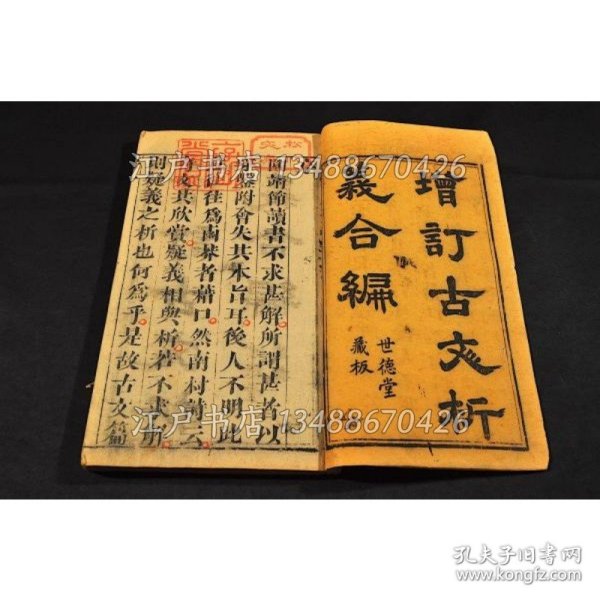 增訂古文析
義合編
世德堂
藏板
陶靖節讀書不求甚解所謂甚者以
穿鑿附會失其本旨耳後人不明此
往往爲鹵莽者藉口然南村詩云
奇文共欣賞疑義相與析若不求解
則疑義之析也何爲乎是故古文篇
江户书店 13488670426
江户书店 13488670426
孔夫子旧书网
www.kongfz.com